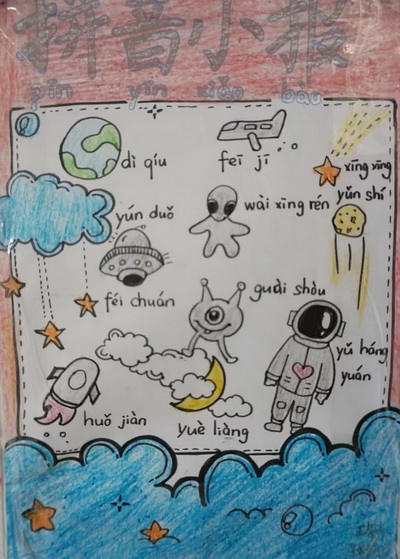 拼音小报
pīn yīn xiǎo bào
dì qíu
feī jī
xīng xīng
yǔn shí
wài xīng rén
yún duǒ
féi chuán
guài shòu
yǔ háng
yuán
huǒ jiàn
yuè liàng